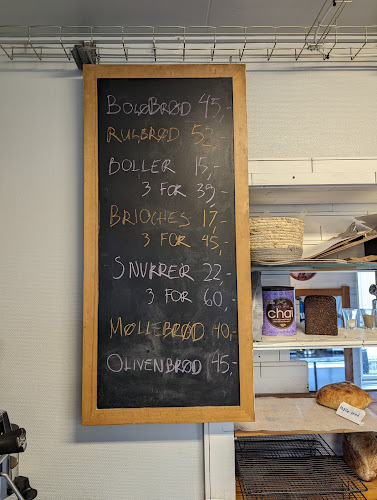 BOLØBRØD 45,-
RUGBRØD 52,-
BOLLER 15,-
3 FOR 39,-
BRIOCHES 17,-
3 FOR 45,-
SNURRER 22,-
3 FOR 60,-
MØLLEBRØD 40,-
OLIVENBRØD 45,-
chai